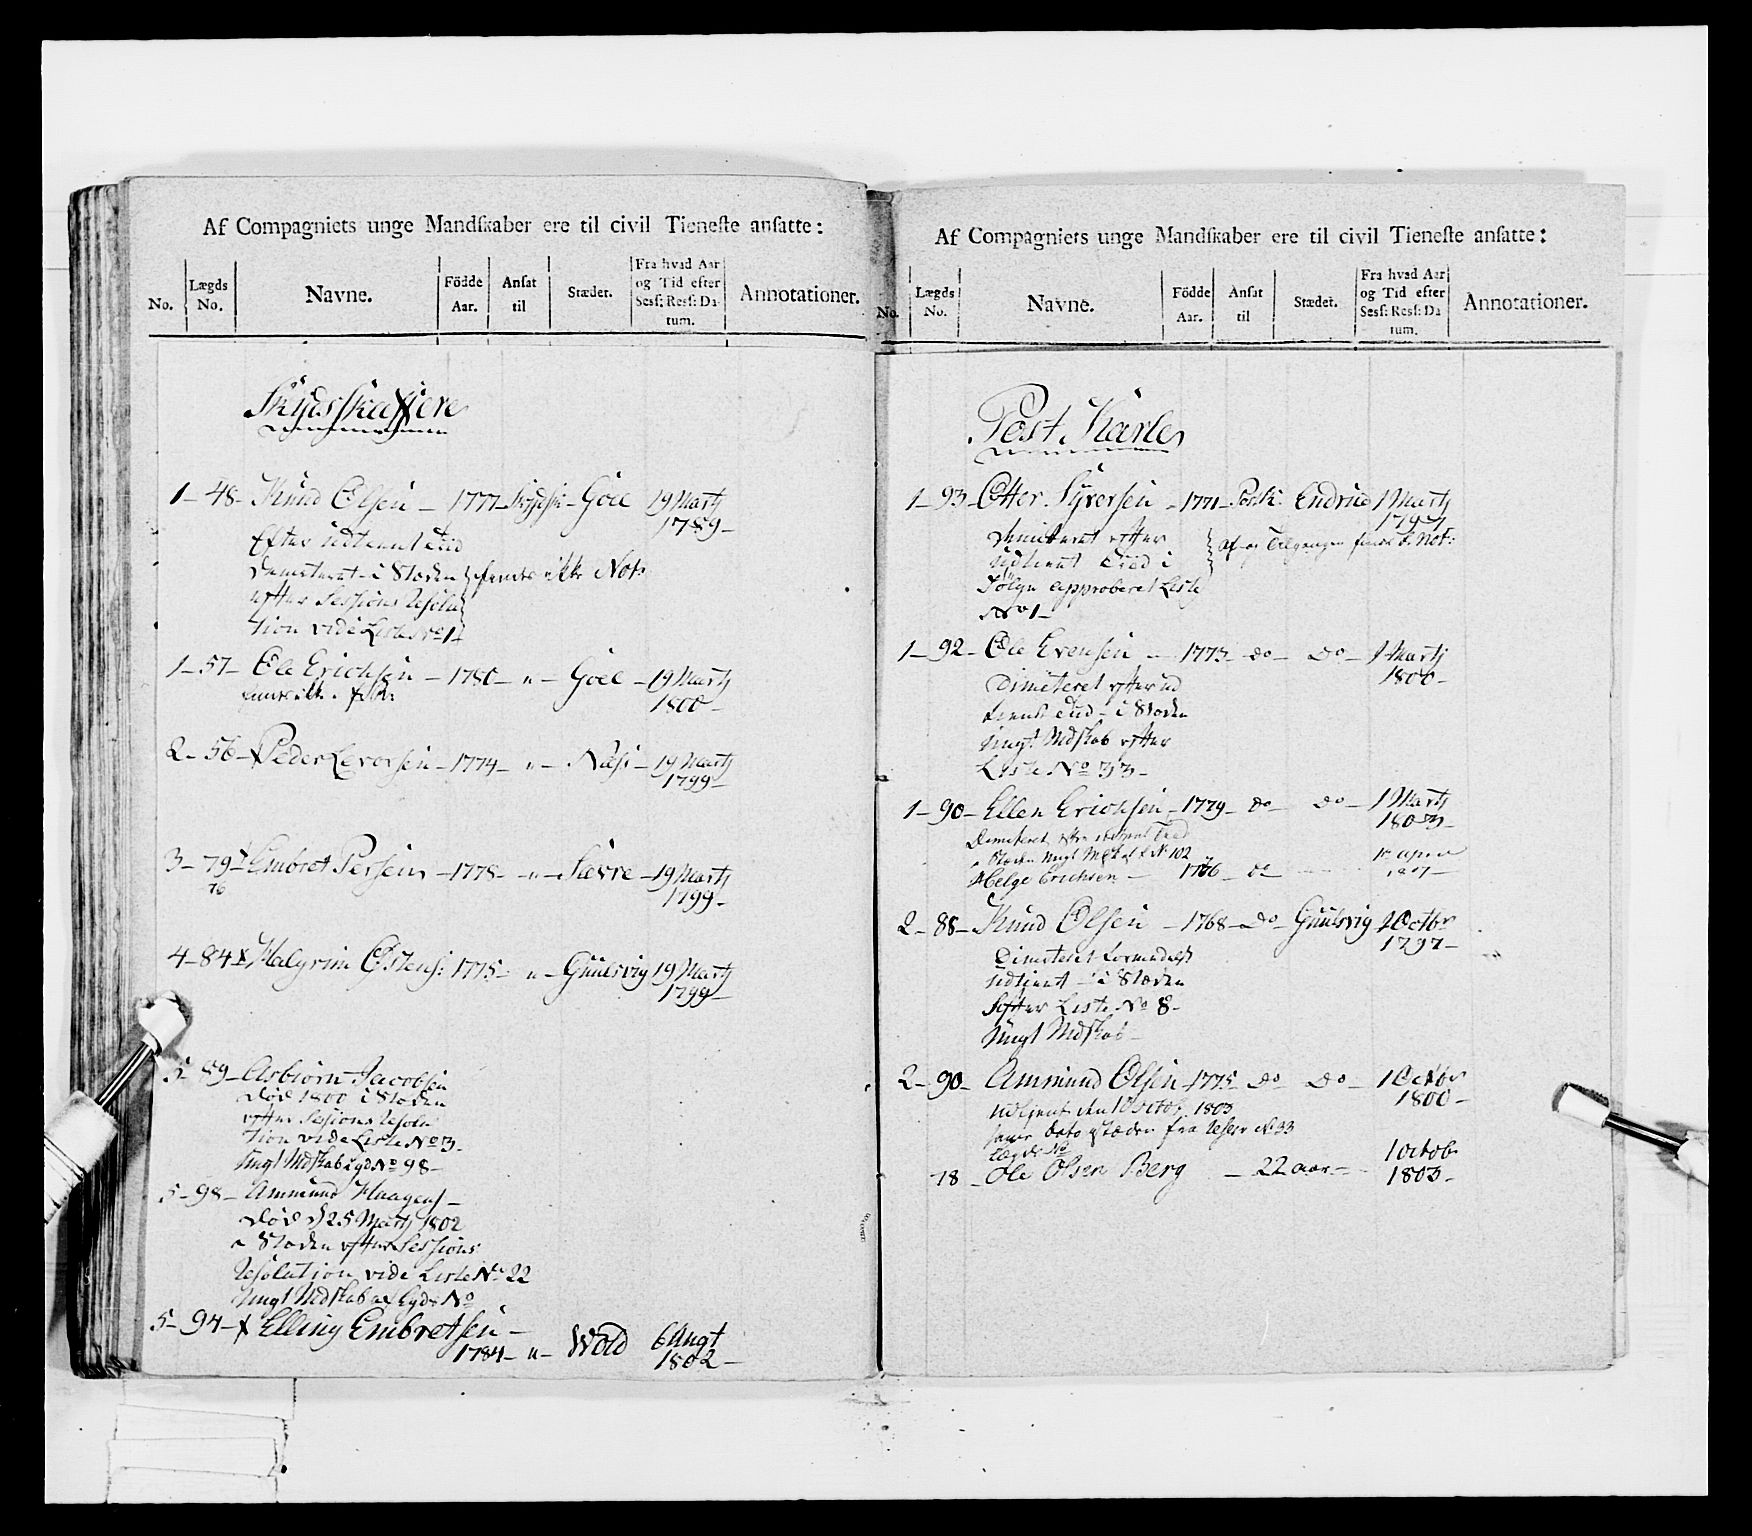 Af Compagniets unge Mandskaber ere til civil Tieneste ansatte:
No. Lægds No. Navne. Födde Aar. Ansat til Stædet. Fra hvad Aar og Tid efter Sess: Ress: Datum. Annotationer.
Skydsskaffere
1 - 48 - Knud Olsen - 1777 - Skydssk - Goel 19 Martj
1789 -
Efter udtient Tiid
Demeteret - i Stæden
efter Sessions Resolu
tion vide Liste No 1
ikke Not:
1 - 57 - Ole Erichsen - 1780 - " - Goel - 19 Martj
1800 -
2 - 56 - Peder Leversen - 1774 - " - Næss - 19 Martj
1799 -
3 - 79 Embret Persen - 1778 - " - Sævre - 19 Martj
76 1799 -
4 - 84 x Halgrim Østens: 1775 - " - Guulsvig 19 Martj
1799 -
5 - 89 - Asbiörn Jacobsen
Död 1800 i Stæden
efter Sessions Resolu
tion vide Liste No 3 -
Ungt Mdskab No 98 -
5 - 98 - Ammund Haagens -
Död d 25 Martj 1802
i Stæden efter Sessions
Resolution vide Liste No 22
Ungt Mdskab No
5 - 94 - x Elling Embretsen -
1784 - " - Wold 6 Augt
1802 -
Af Compagniets unge Mandskaber ere til civil Tieneste ansatte:
No. Lægds No. Navne. Födde Aar. Ansat til Stædet. Fra hvad Aar og Tid efter Sess: Ress: Datum. Annotationer.
Post Karle
1 - 93 - Otter Syversen - 1771 - Postk: Endrud 1 Martj
1797
Demiteret efter
udtient Tiid i
Fölge approberet Liste
No 1 -
1 - 92 - Ole Evensen - 1773 - do - do - 1 Martj
1800 -
Dimeteret efter ud
tient Tiid - i Stæden
Ungt Mdskab efter
Liste No 33 -
1 - 90 - Ellen Erichsen - 1779 - do - do - 1 Martj
1803 -
Demeteret efter udtient Tied
i Stæden Ungt No 102
Helge Erichsen - 1776 - do -
2 - 88 - Knud Olsen - 1768 - do - Guulsvig 1 Octbr
1797 -
Dimeteret formedelst
udtient - i Stæden
efter Liste No 8 -
Ungt Mdskab -
2 - 90 - Ammund Olsen - 1775 - do - do - 1 Octbr
1800 -
udtjent den 1 Octob. 1803
samme dato i stæden fra Reserv No 33
Lægds No 1 Octob.
18 - Ole Olsen Berg - 22 aar - 1803 -